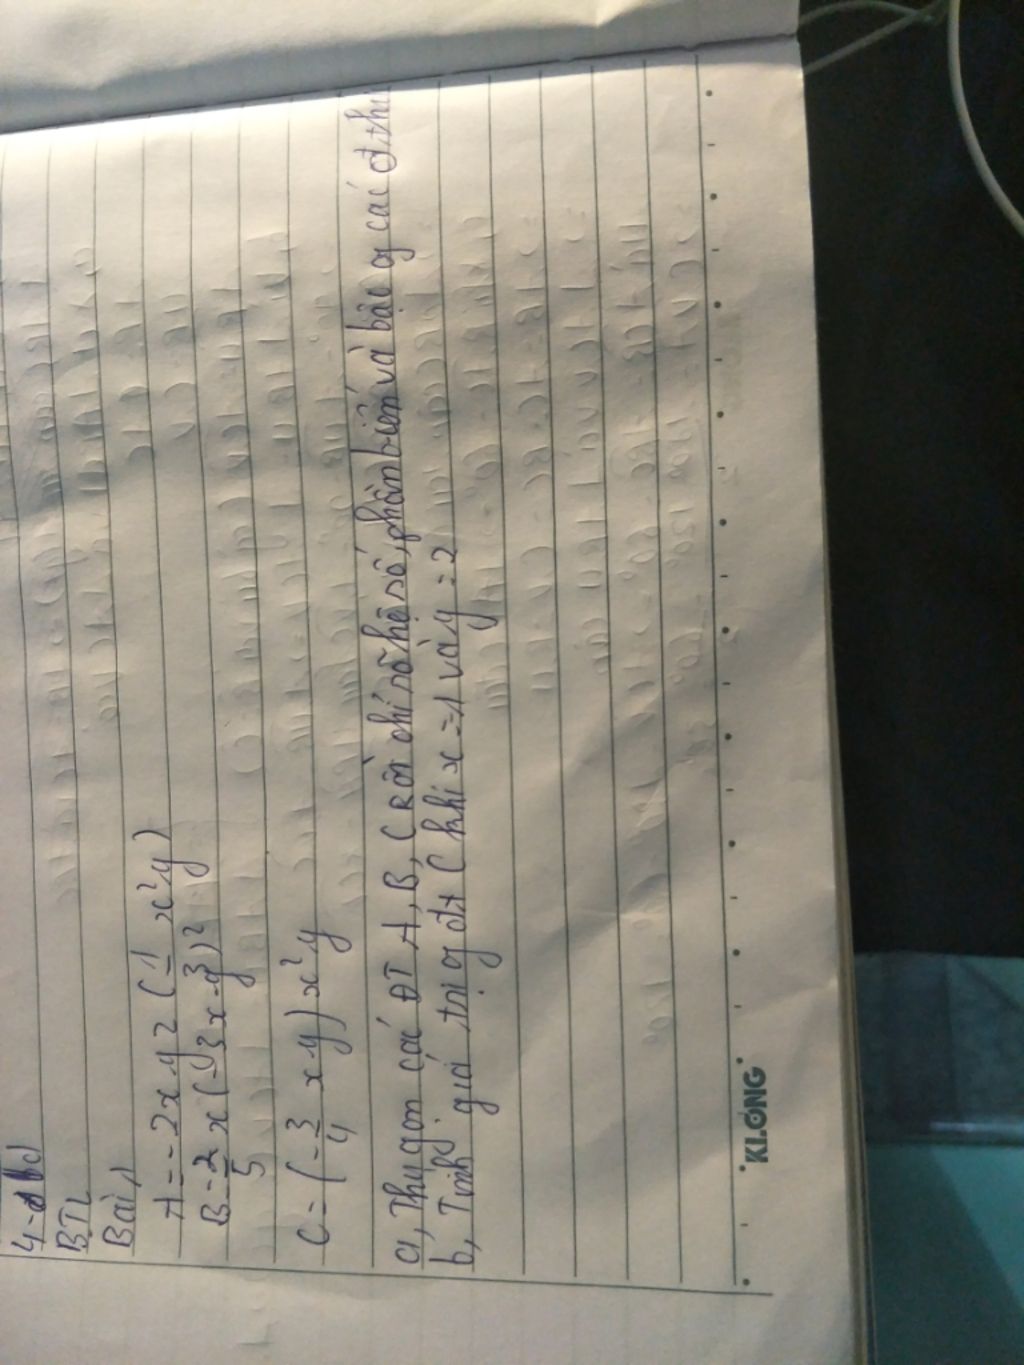 BTL
Bài 1
A = -2xy² (1 x²y)
B = 2 x (-3x-y³)²
5
C = (-3 xy) x²y
4
a, Thu gọn các ĐT A, B, C rồi chỉ rõ hệ số, phần biến và bậc of các đ.thức
b, Tính giá trị of đt C khi x = -1 và y = 2
KLONG